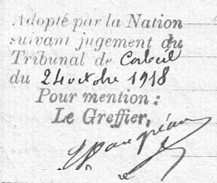 Adopté par la Nation
suivant jugement du
Tribunal de Corbeil
du 24 octobre 1918
Pour mention :
Le Greffier,